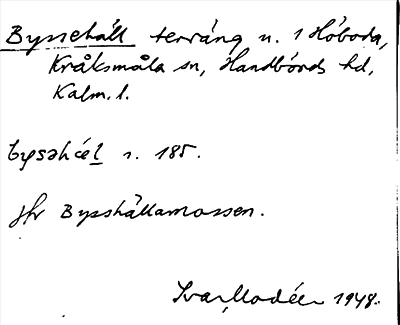 Byssehäll terräng n. 1 Hóboda,
Kråksmåla sn, Handbörds hd,
Kalm. l.
bysəhél s. 185.
Jfr Bysshällamossen.
Ivar Modéer 1948.